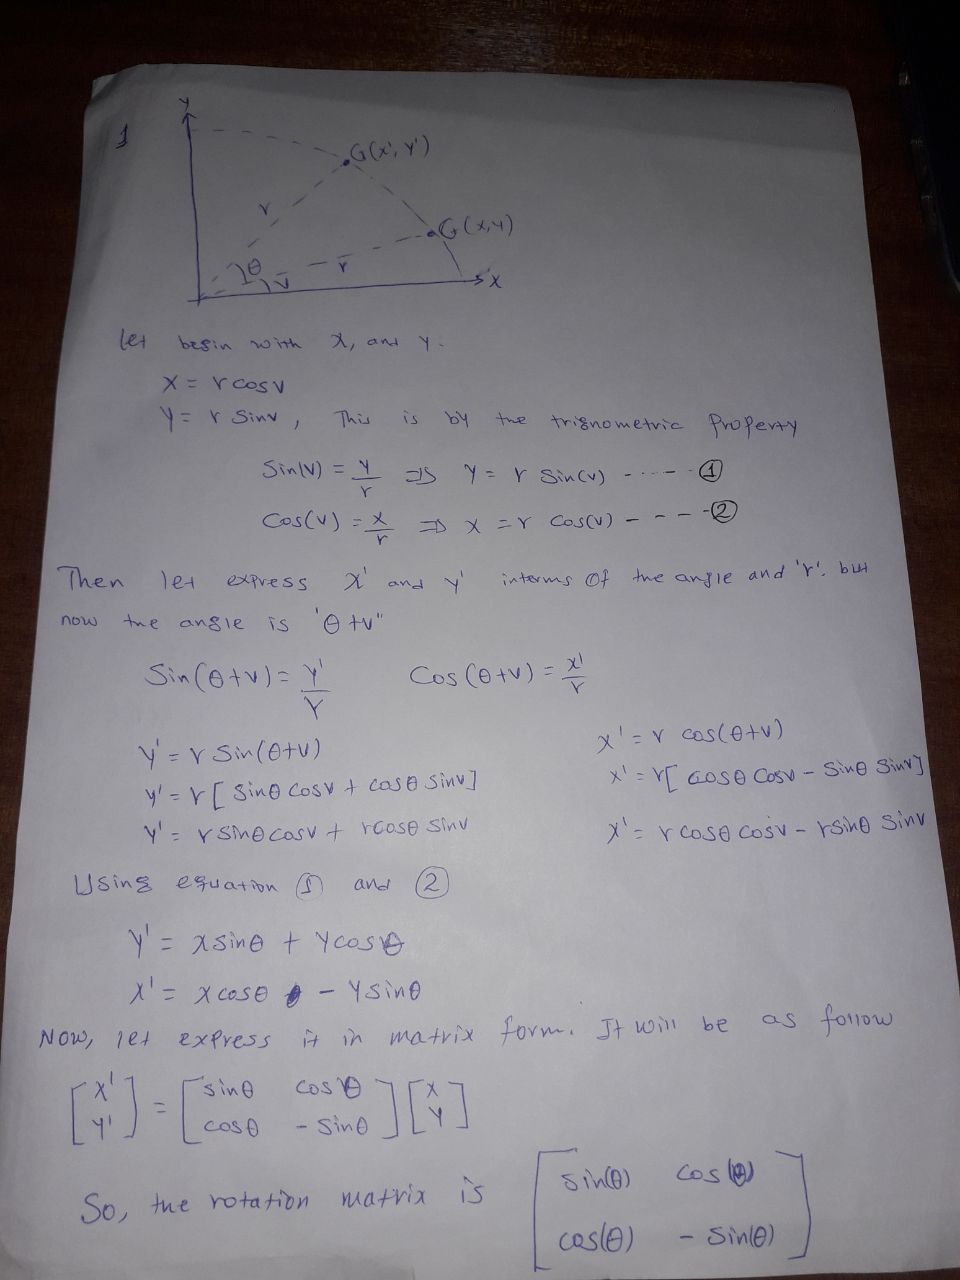 1
Y
G(x', y')
r
G(x,y)
θ
r
v
X
let begin with x, and y.
X = r cosv
Y = r sinv, This is by the trignometric property
Sin(v) = y/r => Y = r Sin(v) ------ ①
Cos(v) = x/r => x = r Cos(v) ---- ②
Then let express x' and y' interms of the angle and 'r'. but
now the angle is 'θ+v"
Sin(θ+v) = y'/r Cos(θ+v) = x'/r
y' = r Sin(θ+v) x' = r cos(θ+v)
y' = r[sinθ cosv + cosθ sinv] x' = r[cosθ cosv - Sinθ Sinv]
y' = r sinθ cosv + rcosθ sinv x' = r cosθ cosv - rsinθ sinv
Using equation ① and ②
y' = xsinθ + ycosθ
x' = xcosθ - ysinθ
Now, let express it in matrix form. It will be as follow
[x'] = [sinθ cosθ] [x]
[y'] [cosθ -sinθ] [y]
So, the rotation matrix is [sin(θ) cos(θ)]
[cos(θ) - Sin(θ)]